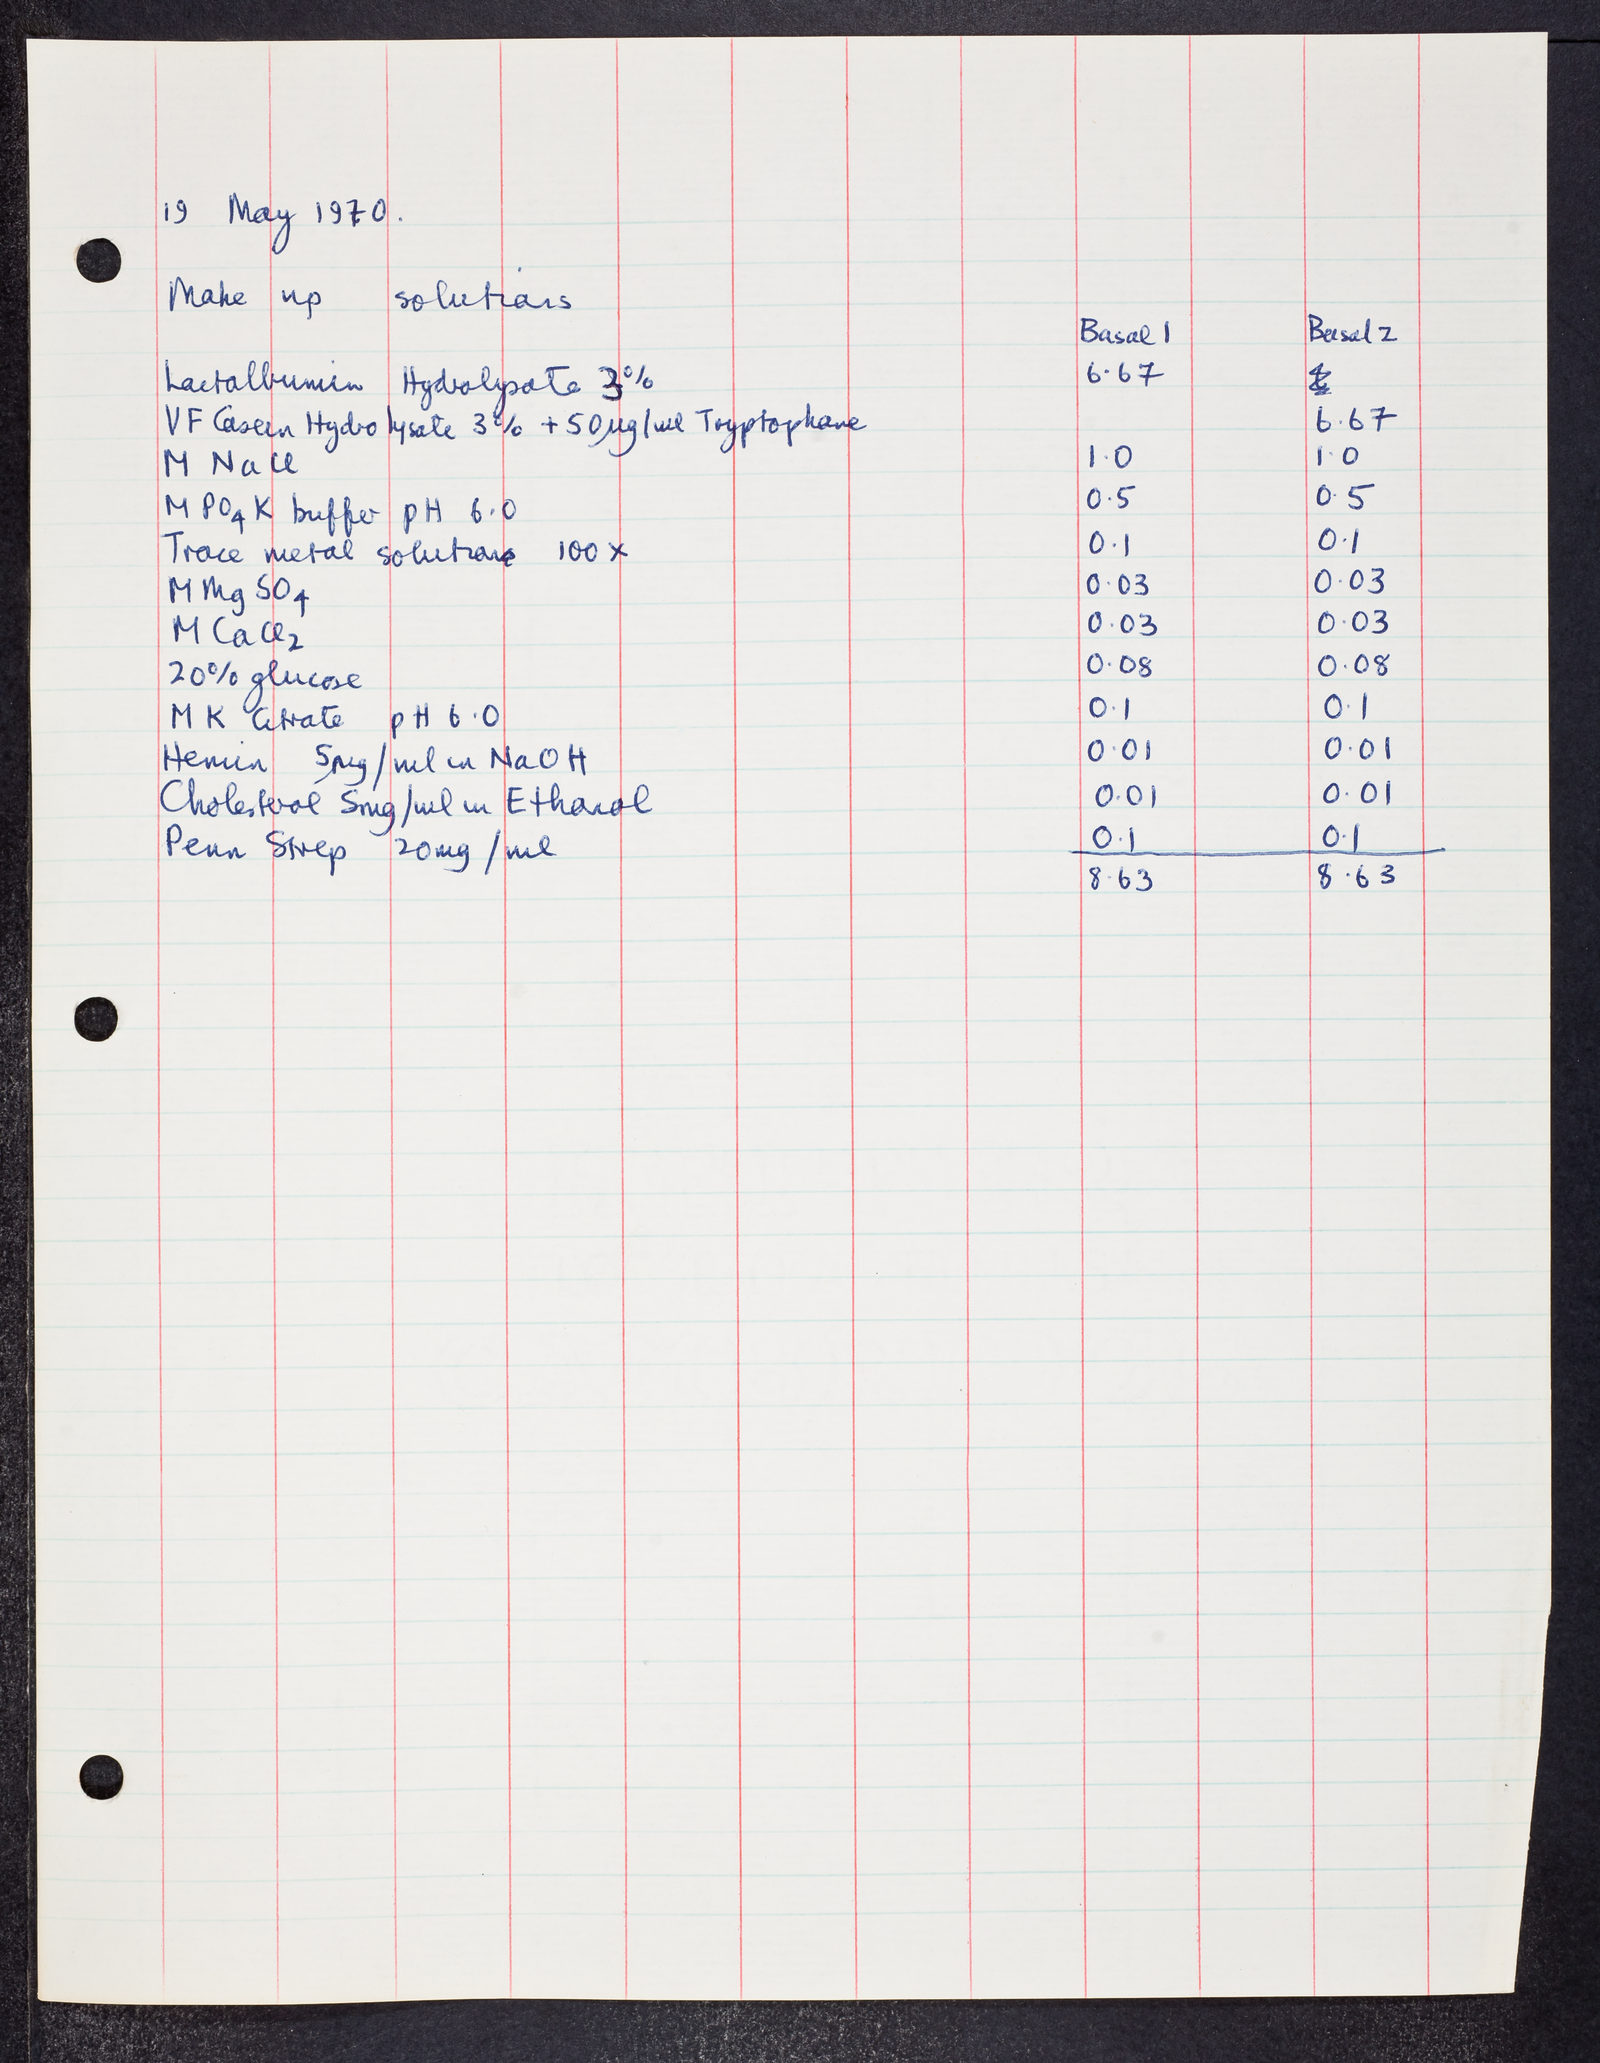 19 May 1970.
Make up solutions
Basal 1 Basal 2
Lactalbumin Hydrolysate 3% 6.67
VF Casein Hydrolysate 3% + 50µg/ml Tryptophane 6.67
M NaCl 1.0 1.0
M PO4 K buffer pH 6.0 0.5 0.5
Trace metal solutions 100x 0.1 0.1
M MgSO4 0.03 0.03
M CaCl2 0.03 0.03
20% glucose 0.08 0.08
M K Citrate pH 6.0 0.1 0.1
Hemin 5mg/ml in NaOH 0.01 0.01
Cholesterol 5mg/ml in Ethanol 0.01 0.01
Penn Strep 20mg/ml 0.1 0.1
8.63 8.63